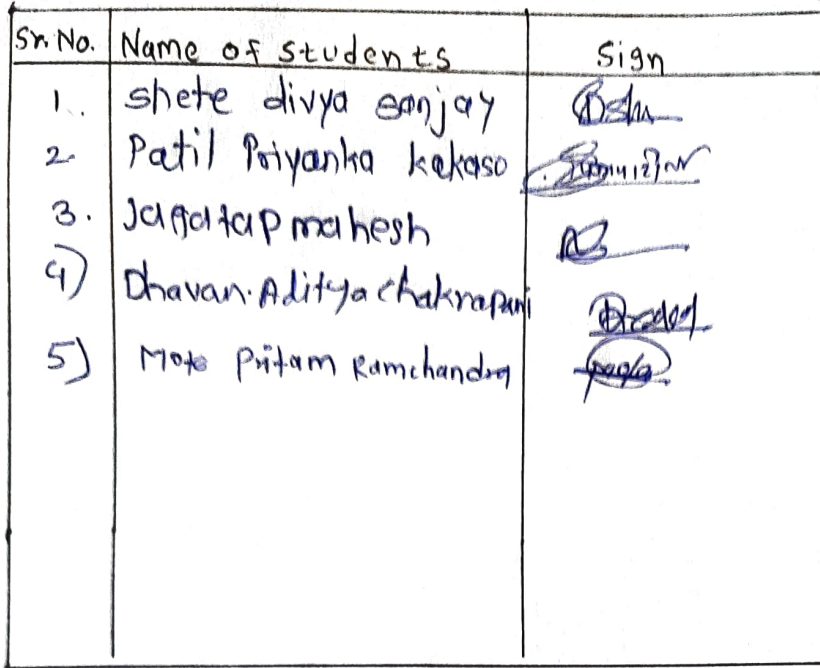 Sr. No. Name of students Sign
1. shete divya sanjay
2. Patil Priyanka kakaso
3. Jagatap mahesh
4) Dhavan. Aditya chakrapani
5) Mote Pritam Ramchandra